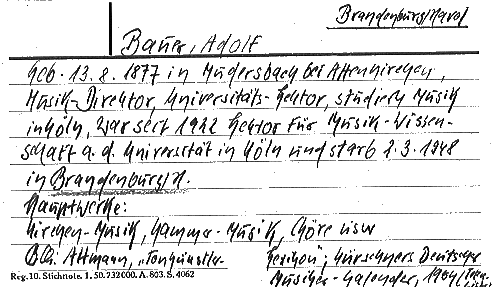 Brandenburg/Havel
Bauer, Adolf
Geb. 13.8.1877 in Mudersbach bei Altenkirchen,
Musik-Direktor, Universitäts-Lektor, studierte Musik
in Köln, war seit 1922 Lektor für Musik-Wissen-
schaft a.d. Universität in Köln und starb 2.3.1948
in Brandenburg/H.
Hauptwerke:
Kirchen-Musik, Kammer-Musik, Chöre usw
Altmann, „Tonkünstler- Lexikon"; Kürschners Deutscher
Musiker-Kalender, 1954
Reg.10. Stichnote. 1.50.732000. A.803. S.4062